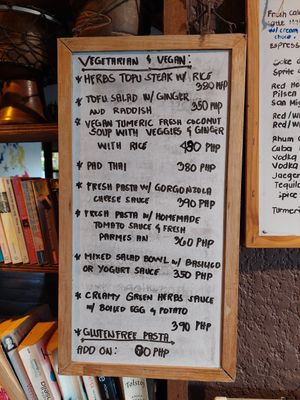 VEGETARIAN & VEGAN:
* HERBS TOFU STEAK W/ RICE
380 PHP
* TOFU SALAD W/ GINGER
AND RADDISH 350 PHP
* VEGAN TUMERIC FRESH COCONUT
SOUP WITH VEGGIES & GINGER
WITH RICE 490 PHP
* PAD THAI 380 PHP
* FRESH PASTA W/ GORGONZOLA
CHEESE SAUCE 390 PHP
* FRESH PASTA W/ HOMEMADE
TOMATO SAUCE & FRESH
PARMESAN 360 PHP
* MIXED SALAD BOWL W/ BASILICO
OR YOGURT SAUCE 350 PHP
* CREAMY GREEN HERBS SAUCE
W/ BOILED EGG & POTATO
390 PHP
* GLUTENFREE PASTA
ADD ON: 80 PHP
Tolstoy